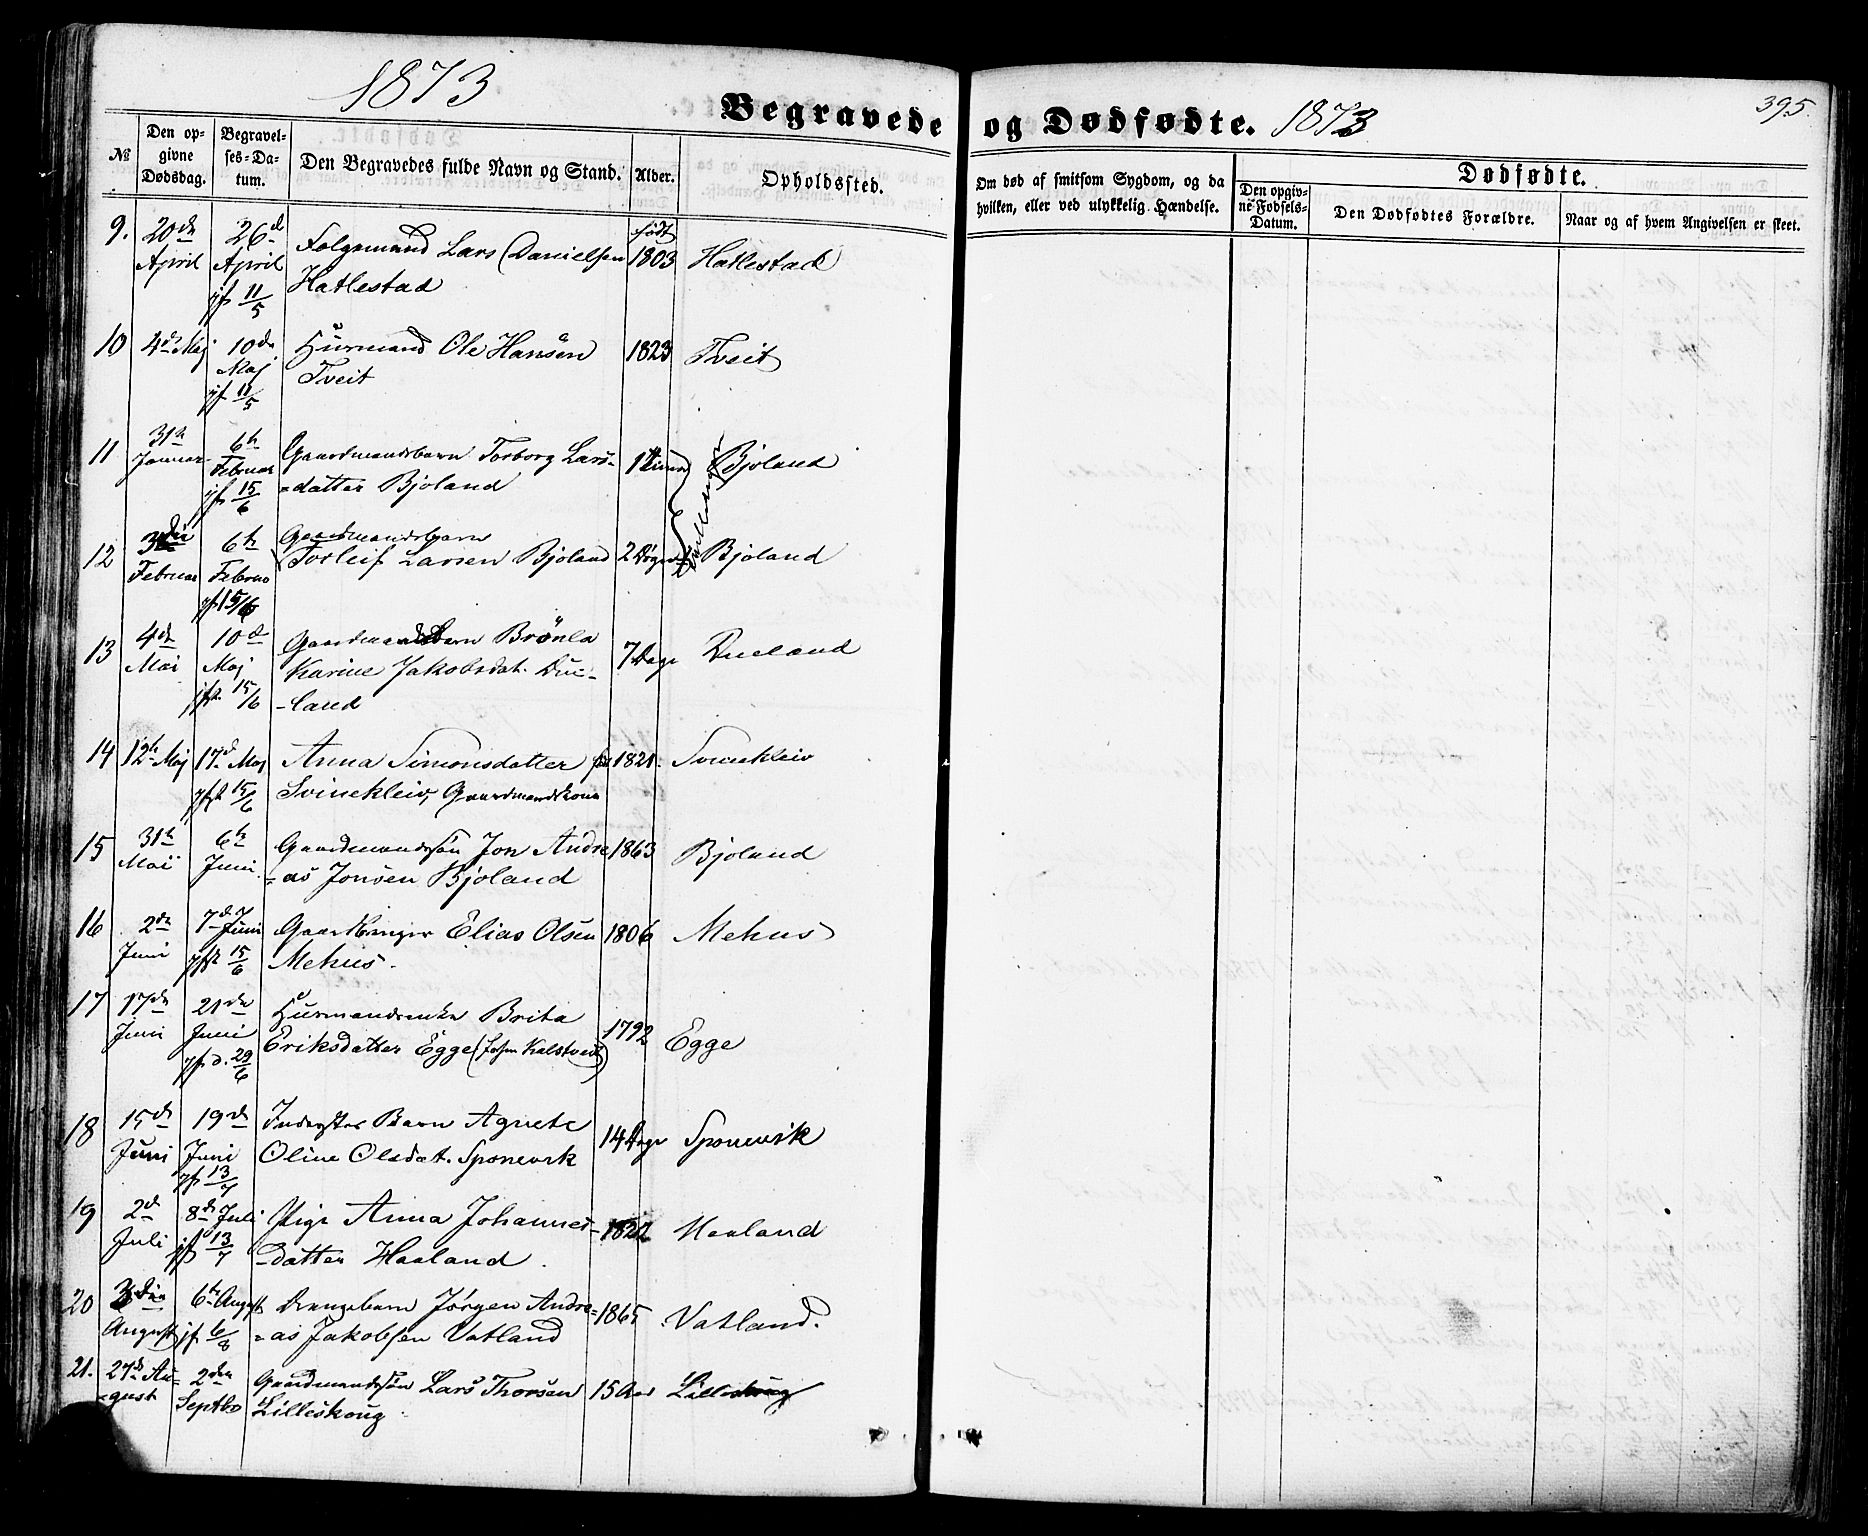 1873
Begravede og Dødfødte. 1873
395.
№
Den op-
givne
Dødsdag.
Begravel-
ses-Da-
tum.
Den Begravedes fulde Navn og Stand.
Alder.
Opholdssted.
Om død af smitsom Sygdom, og da
hvilken, eller ved ulykkelig Hændelse.
Dødfødte.
Den opgiv-
ne Fødsels-
Datum.
Den Dødfødtes Forældre.
Naar og af hvem Angivelsen er skeet.
9.
20de
April
26de
April
jf 11/5
Følgemand Lars Danielsen
Hatlestad
født
1803
Hatlestad
10
4de Maj
10de
Maj
jf 11/5
Husmand Ole Hansen
Tveit
1823
Tveit
11
31te
Januar
6te
Februar
jf 15/6
Gaardmandsbarn Torborg Lars-
=datter Bjoland
Bjoland
12
3die
Februar
6te
Februa
jf 15/6
Gaardmandsbarn
Torleif Larsen Bjoland
2 Døgn
Bjoland
13
4de
Mai
10de
Maj
jf. 15/6
Gaardmandsbarn Brønla
Karine Jakobsdat. Due-
-land
7 Dage
Dueland
14
12te Maj
17de Maj
jf 15/6
Anna Simonsdatter
Svinekleiv, Gaardmandskone
1821
Svinekleiv
15
31te
Mai
6te
Juni
Gaardmandssøn Jon Andre
=as Jonsen Bjoland
1863
Bjoland
16
2den
Juni
7de Juni
jf 15/6
Elias Olsen
Mehus.
1806
Mehus
17
17de
Juni
21de
Juni
jf d. 29/6
Husmandsenke Brita
Eriksdatter Egge
1792
Egge
18
15de
Juni
19de
Juni
jf 13/7
Inderster Barn Agnete
Oline Olsdat. Sponevik
14 Dage
Sponevik
19
2de
Juli
8de Juli
jf 13/7
Pige Anna Johannes-
-datter Haaland.
1822
Haaland
20
3die
August
6te August
jf 6/8
Drengebarn Jørgen Andre=
=as Jakobsen Vatland
1865
Vatland.
21.
27de Au=
=gust
2den
Septbr
Gaardmandssøn Lars Thorsen
Lilleskoug.
15 Aar
Lilleskoug